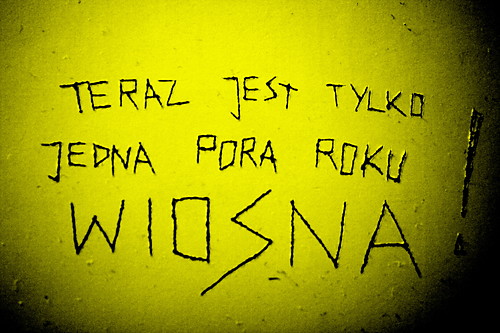 TERAZ JEST TYLKO
JEDNA PORA ROKU
WIOSNA!